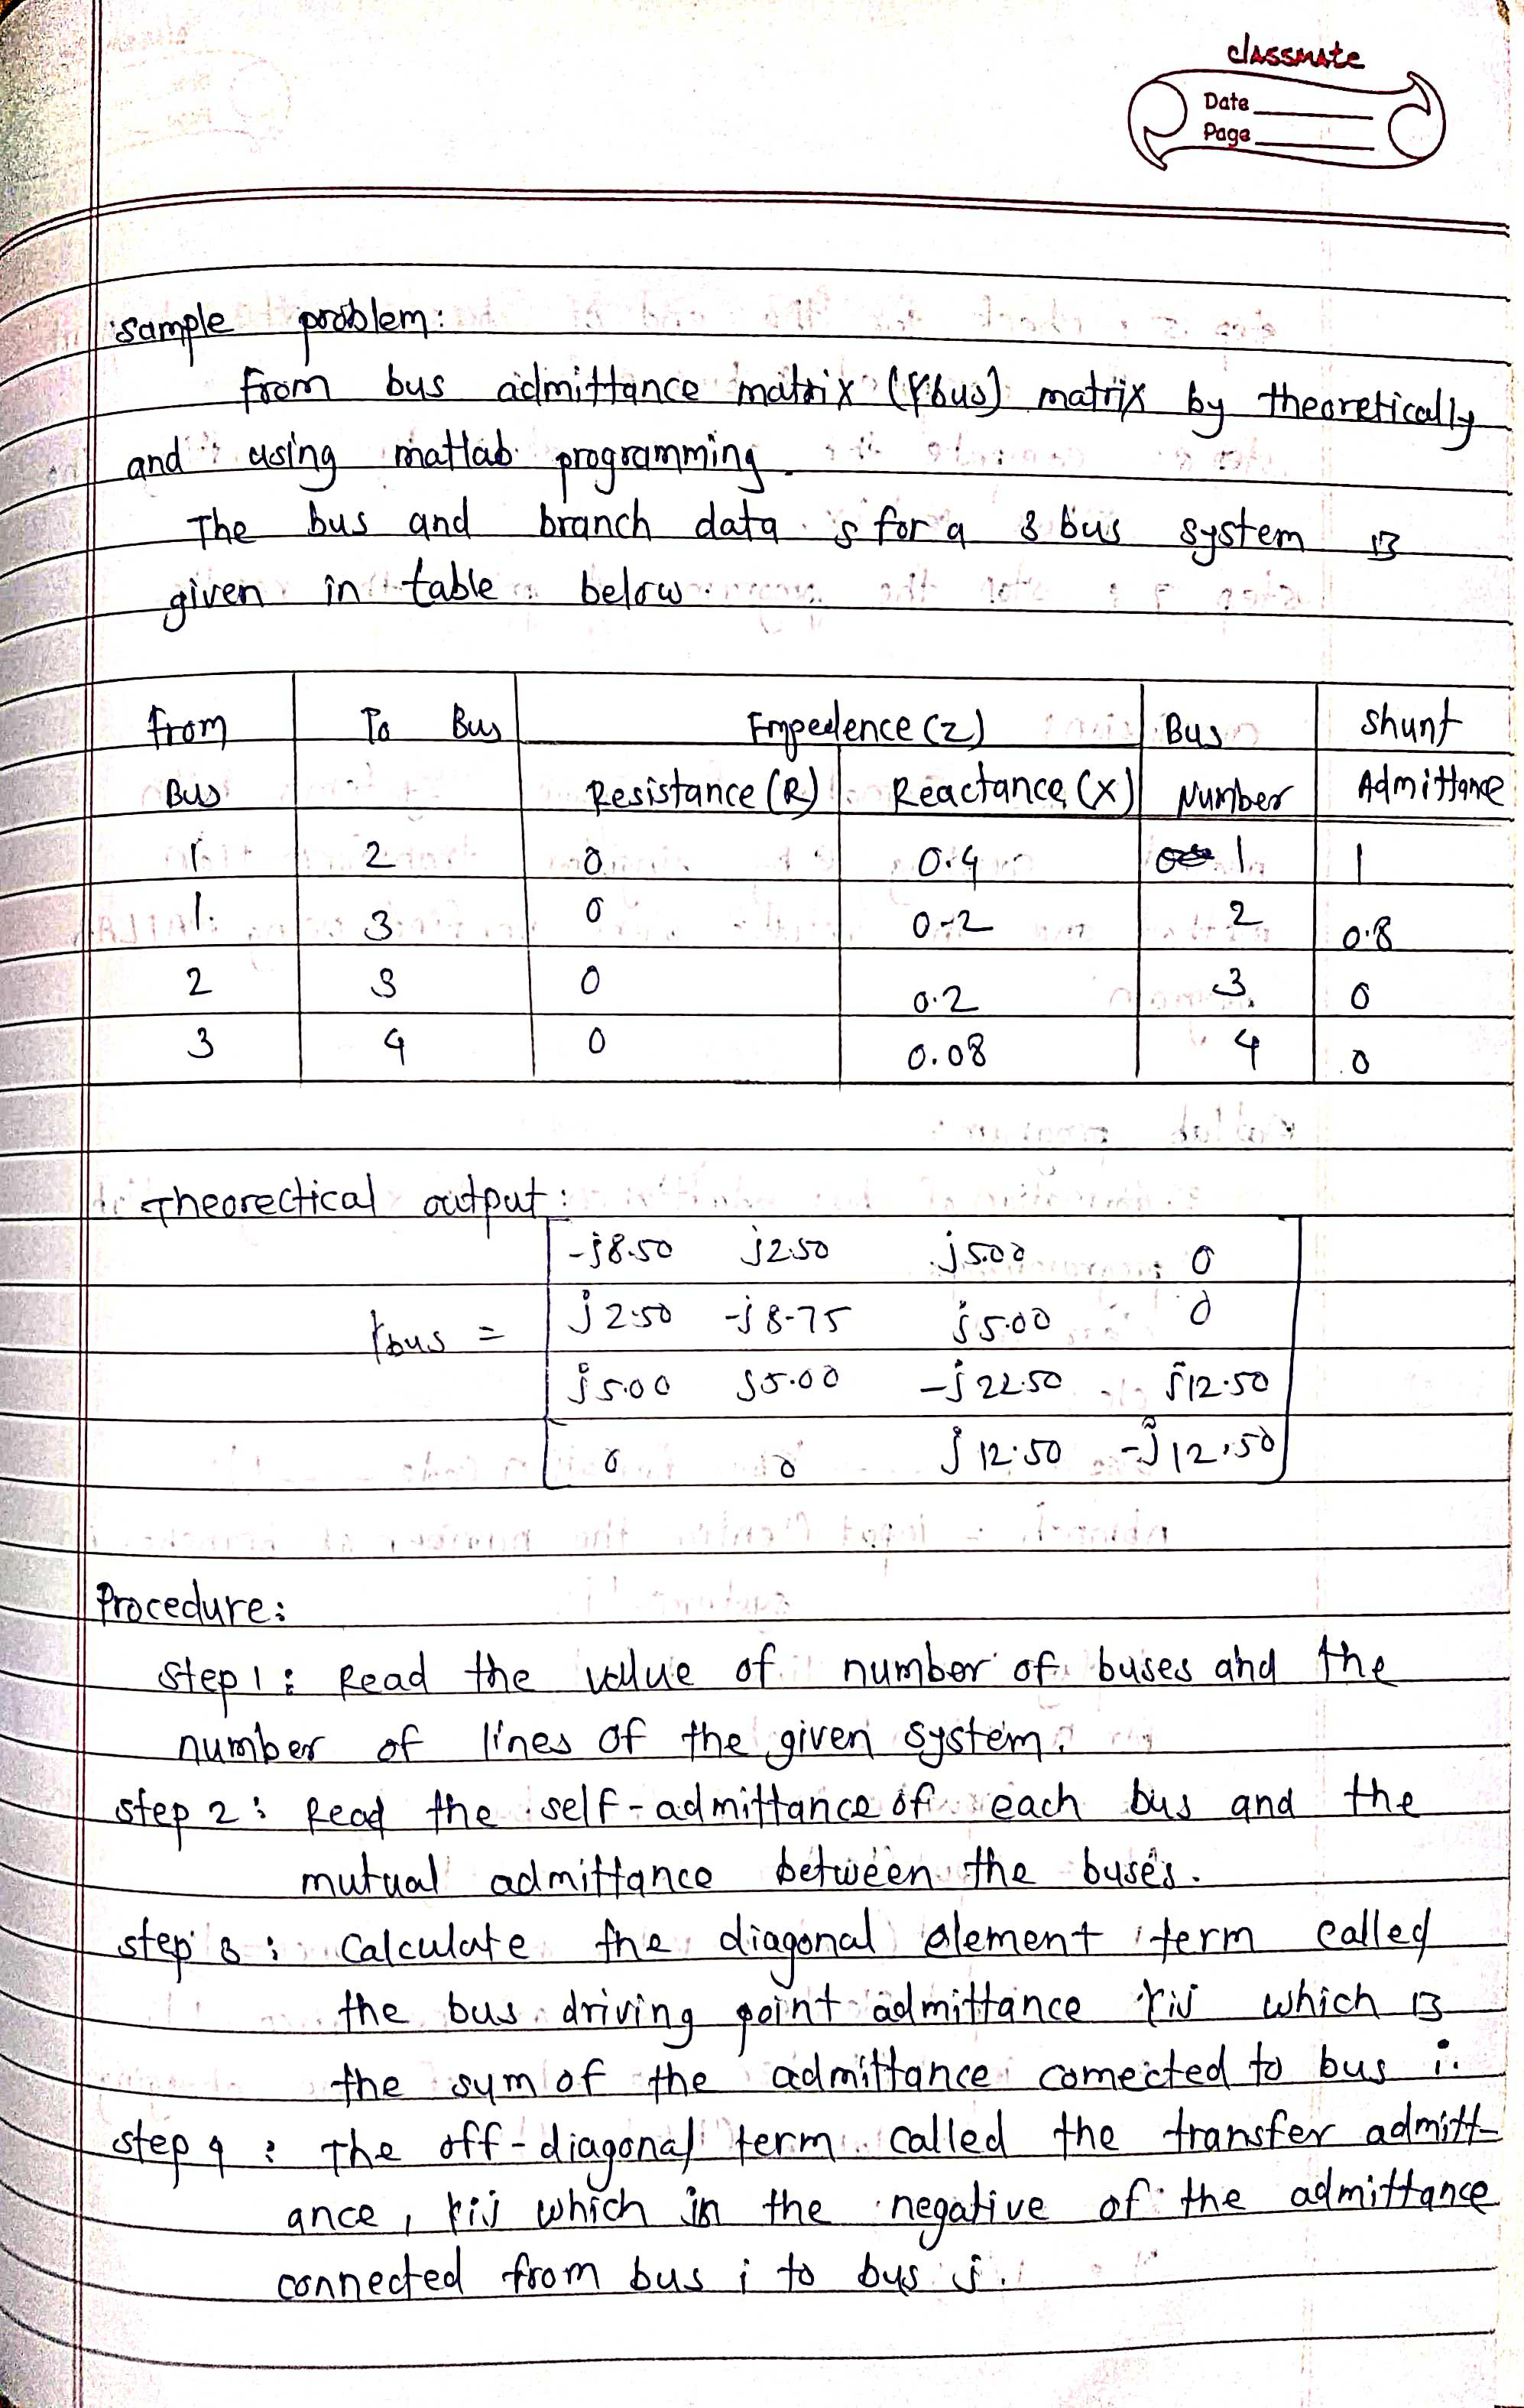 classmate
Date
Page
sample problem:
from bus admittance matrix (Ybus) matrix by theoretically
and using matlab programming.
The bus and branch data s for a 3 bus system is
given in table below.
from To Bus Empedence (z) Bus shunt
Bus Resistance (R) Reactance (X) Number Admittance
1 2 0 0.4 1 1
1. 3 0 0.2 2 0.8
2 3 0 0.2 3 0
3 4 0 0.08 4 0
Theorectical output:
-j8.50 j2.50 j5.00 0
Ybus = j2.50 -j8.75 j5.00 0
j5.00 j5.00 -j22.50 j12.50
0 0 j12.50 -j12.50
Procedure:
step 1: Read the value of number of buses and the
number of lines of the given system.
step 2: Read the self-admittance of each bus and the
mutual admittance between the buses.
step 3: Calculate the diagonal element term called
the bus driving point admittance Yij which is
the sum of the admittance connected to bus i.
step 4: The off-diagonal term called the transfer admitt-
ance, Yij which in the negative of the admittance
connected from bus i to bus j.